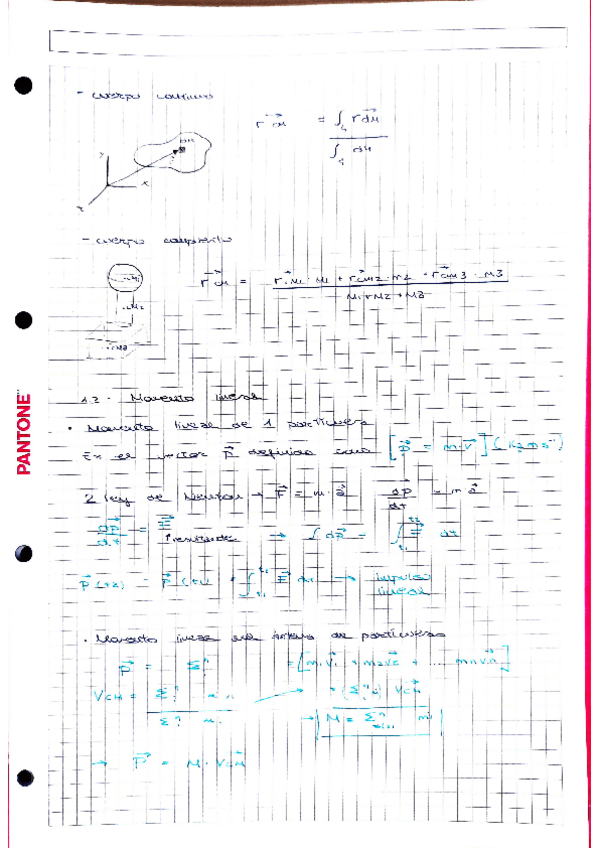 - cuerpo continuo
r⃗cm = ∫ r d⃗m / ∫ dm
dm
y
x
z
- cuerpo compuesto
r⃗cm = r⃗cm1 · M1 + r⃗cm2 · M2 + r⃗cm3 · M3 / M1 + M2 + M3
M2
PANTONE
1.2 - Momento lineal
• Momento lineal de 1 partícula
Es el vector p⃗ definido como [p⃗ = m·v⃗]
2 ley de Newton → F⃗ = m·a⃗ dp⃗/dt = m a⃗
dp⃗/dt = F⃗ resultante → ∫ dp⃗ = ∫t1^t2 F⃗ dt
p⃗(t2) - p⃗(t1) = ∫t1^t2 F⃗ dt → impulso lineal
• Momento lineal de partículas
p⃗ = Σ = [m1v⃗1 + m2v⃗2 + ... mnv⃗n]
VCM = Σ → VCM
M = Σ mi
→ P⃗ = M · VCM